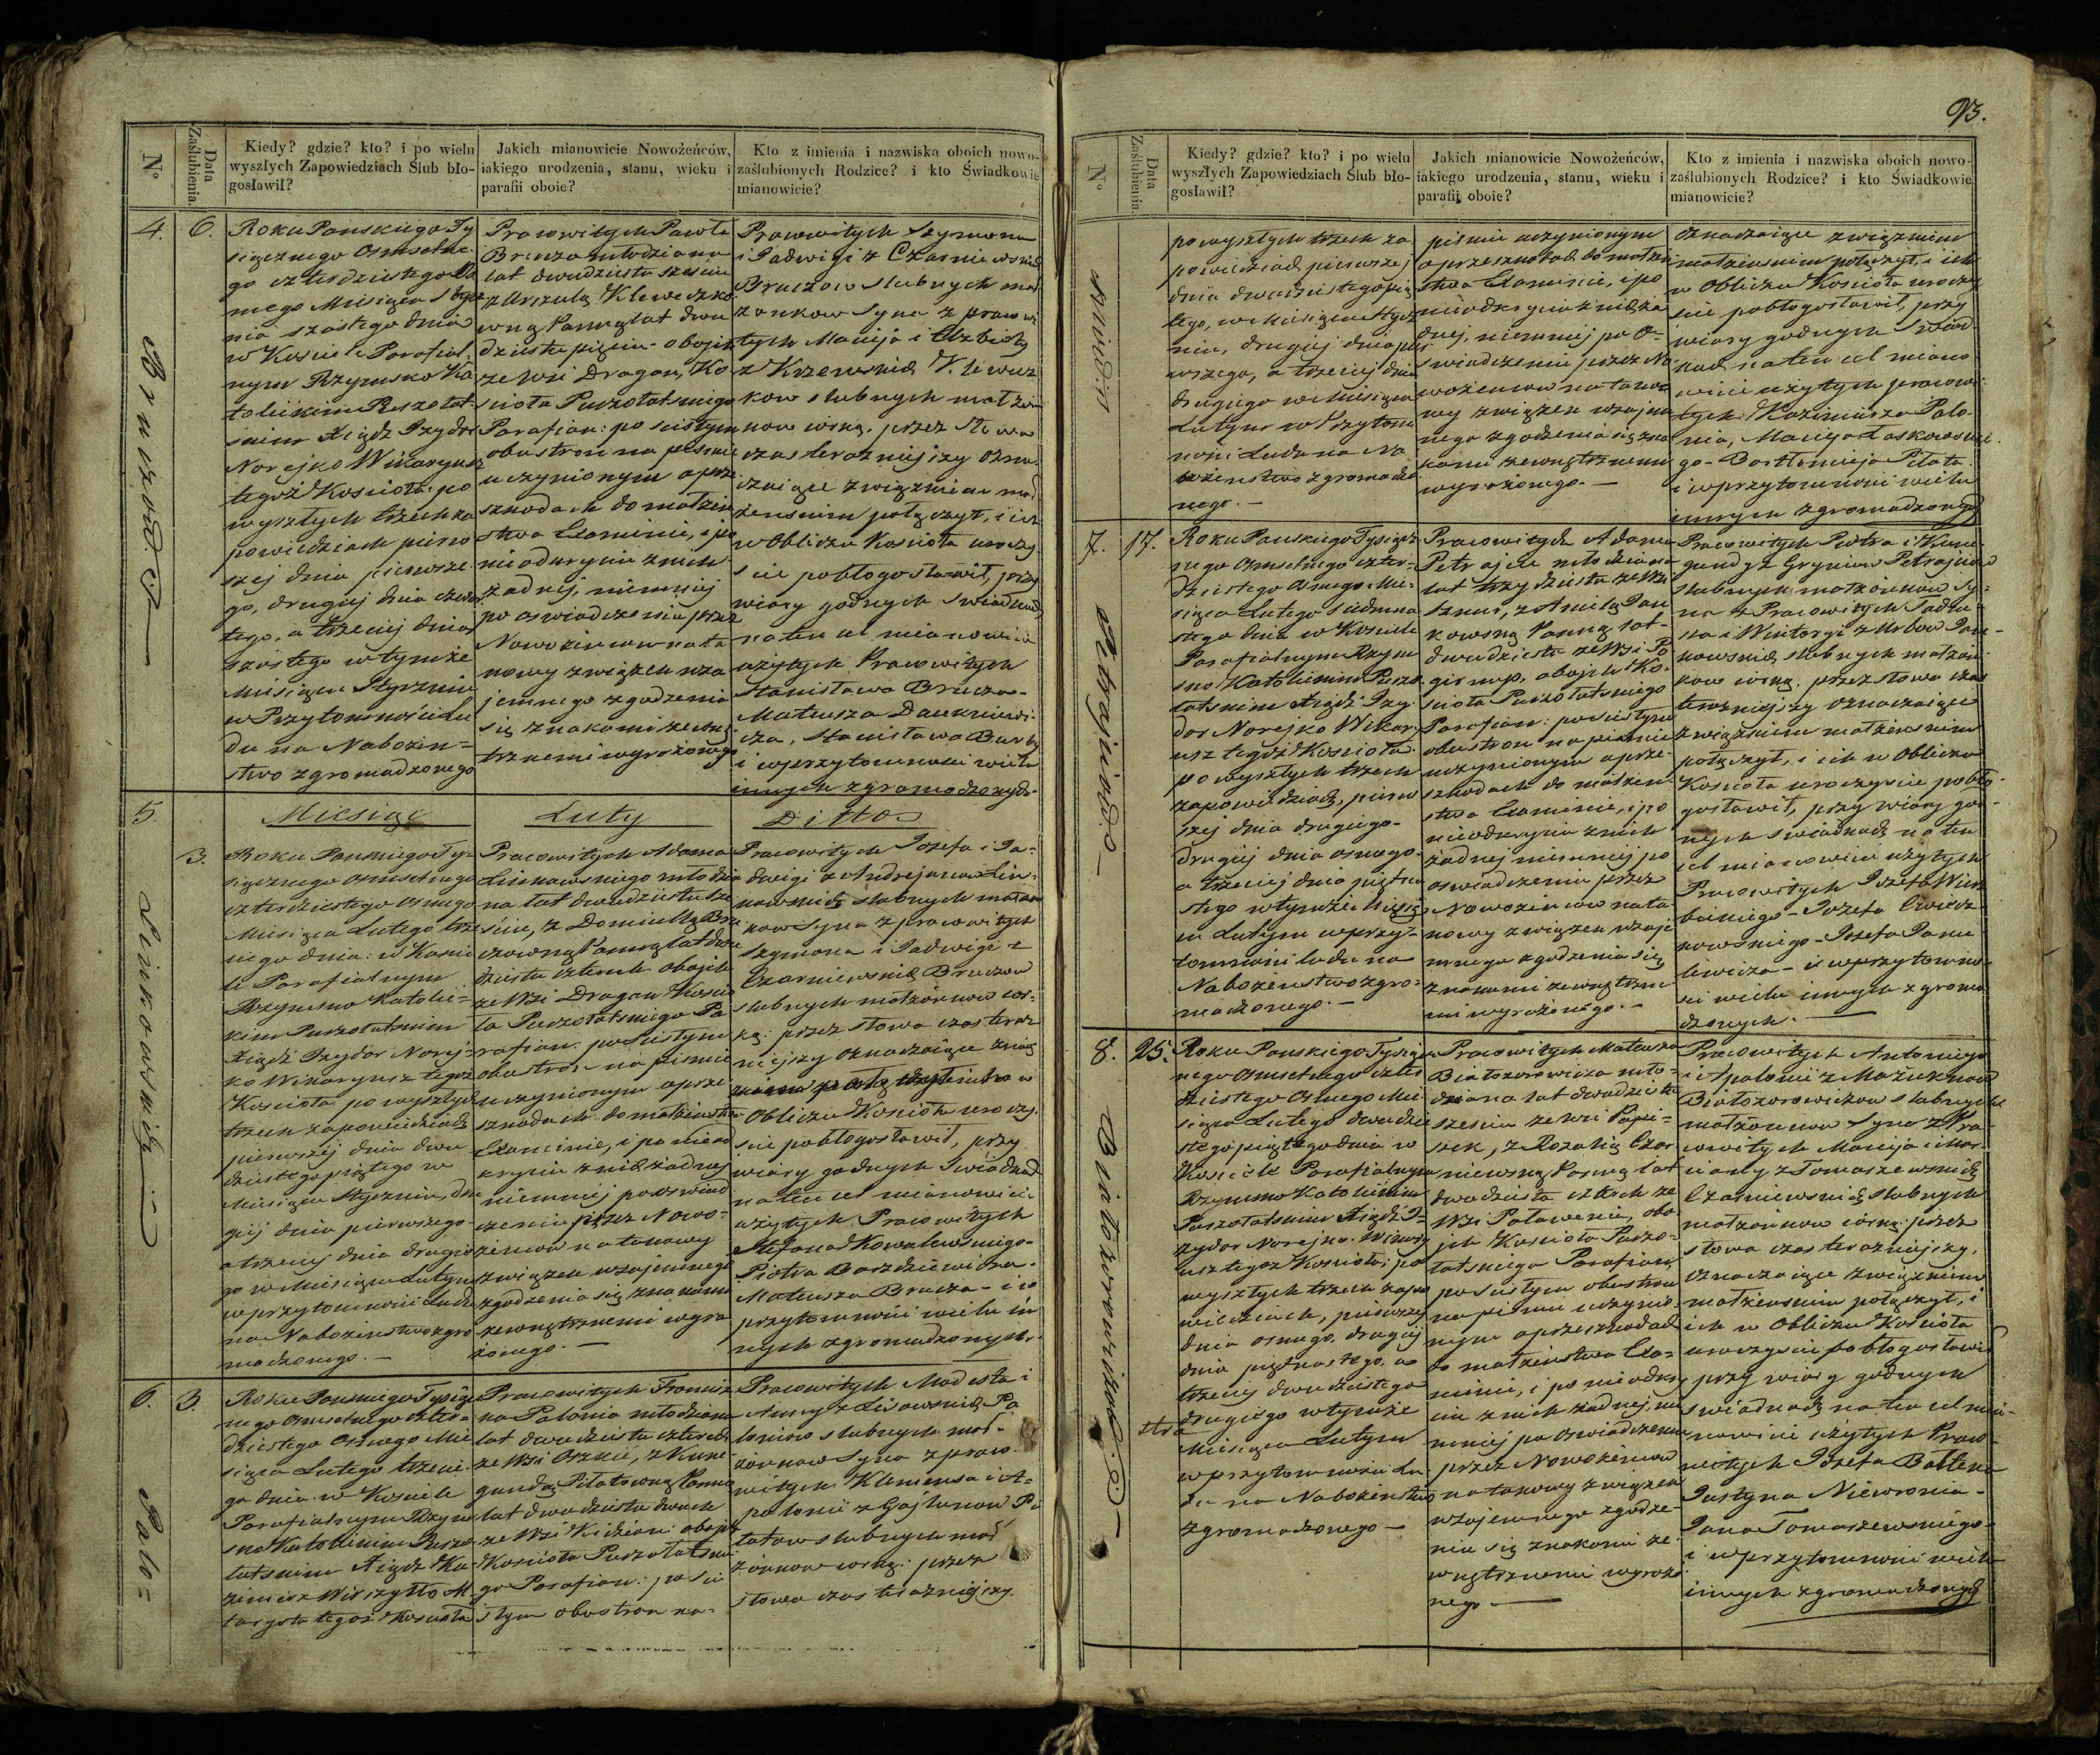 N°
Data Zaślubienia.
Kiedy? gdzie? kto? i po wielu
wyszłych Zapowiedziach Ślub bło-
gosławił?
Jakich mianowicie Nowożeńców,
iakiego urodzenia, stanu, wieku i
parafii oboie?
Kto z imienia i nazwiska oboich nowo-
zaślubionych Rodzice? i kto Świadkowie
mianowicie?
4.
6.
Roku Panskiego Ty
siącznego Osmsetne
go czterdziestego Os
mego Miesiąca Stycz
nia szostego dnia
w Kosciele Parafial-
nym Rzymsko Ka
tolickim Puszołat-
skim Xiądz Izydor
Norejko Wikaryusz
tegoż Kościoła po
wyszłych trzech za
powiedziach pierw
szej dnia pierwsze
go, drugiej dnia czwar
tego, a trzeciej dnia
szóstego w tymże
Miesiącu Styczniu
w Przytomności Lu
du na Nabożeń=
stwo zgromadzonego
Pracowitych Pawła
Brucza młodziana
lat dwadziescia szesciu
z Urszulą Kleweczko
wną Panną lat dwa
dziestu pięciu - oboich
ze Wsi Dragan, Ko
scioła Puszołatskiego
Parafian: po scisłym
obustron na pismie
uczynionym o prze
szkodach do małżeń
stwa Examinie, i po
nieodkryciu z nich
żadnej, niemniej
po oswiadczeniu przez
Nowożeńcow na ta
kowy związek wza
jemnego zgodzenia
się znakami zewnę
trznemi wyrażonego
Pracowitych Szymona
i Jadwigi z Czarniewskich
Bruczow slubnych mał
żonkow Syna z pracowi
tych Macieja i Elżbiety
z Krzewskich Klewecz
kow slubnych małżon
kow córką. przez Słowa
czas teraźniejszy ozna
czaiące związkiem mał
żeńskim połączył, i ich
w Obliczu Kościoła uroczy
scie pobłogosławił, przy
wiary godnych Swiadkach
na ten cel mianowicie
użytych Pracowitych
Stanisława Brucza-
Mateusza Daukniewi-
cza, Stanisława Burby
i w przytomnosci wielu
innych zgromadzonych.
Bruczow.
5.
Miesiąc
Luty
Dittos
3.
Roku Panskiego Ty-
siącznego Osmsetnego
czterdziestego Osmego
Miesiąca Lutego trze
ciego dnia: w Koście
le Parafialnym
Rzymsko Katolic=
kim Puszołatskim
Xiądz Izydor Norej-
ko Wikaryusz tegoż
Kościoła po wyszłych
trzech zapowiedziach
pierwszej dnia dwu
dziestego piątego w
Miesiącu Styczniu, dru
giej dnia pierwszego-
a trzeciej dnia drugie
go w Miesiącu Lutym
w przytomnosci Ludu
na Nabożeństwo zgro
madzonego.-
Pracowitych Adama
Linkowskiego młodzia
na lat dwadziestu sze
sciu, z Domicellą Bru
czowną Panną lat dwu
dziestu czterech obojich
ze Wsi Dragan Koscio
ła Puszołatskiego Pa
rafian: po Scisłym
obustron na pismie
uczynionym o prze
szkodach do małżeństwa
Examinie, i po nieod
kryciu z nich żadnej
niemniej po oswiad
czeniu przez Nowo-
żeńcow na takowy
związek wzajemnego
zgodzenia się znakami
zewnętrznemi wyra
żonego.-
Pracowitych Józefa i Ja=
dwigi z Andrejunow Lin-
kowskich slubnych małżon
kow Syna z pracowitych
Szymona i Jadwigi z
Czarniewskich Bruczow
slubnych małżonkow cor-
ką: przez słowa czas teraz
niejszy oznaczaiące związ
Obliczu Kościoła uroczy-
scie pobłogosławił, przy
wiary godnych Swiadkach
na ten cel mianowicie
użytych Pracowitych
Stefana Kowalewskiego-
Piotra Bardziewicza-
Mateusza Brucza- i w
przytomności wielu in
nych zgromadzonych.
Linkowskich
6.
3.
Roku Panskiego Tysiącz
nego Osmsetnego cztero
dziestego Osmego Mie
siąca Lutego trzecie
go dnia w Kosciele
Parafialnym Rzym
sko Katolickim Puszo-
łatskim Xiądz Ka-
zimierz Wirszyłło Al-
tarysta tegoż Kościoła
Pracowitych Francisz
ka Palonia młodziana
lat dwadziestu czterech
ze Wsi Oszkic, z Kune
gundą Piłatowną Panną
lat dwadziestu dwóch
ze Wsi Kidzion: obojich
Kościoła Puszołatskie
go Parafian: po Sci
słym obustron na-
Pracowitych Modesta i
Anny z Lisowskich Pa
loniow slubnych mał-
żonkow Syna z praco
witych Klemensa i A-
polonii z Gajlunow Pi
łatow slubnych mał
żonkow corką: przez
słowa czas teraźniejszy.
Palo=
93.
N°
Data Zaślubienia.
Kiedy? gdzie? kto? i po wielu
wyszłych Zapowiedziach Ślub bło-
gosławił?
Jakich mianowicie Nowożeńców,
iakiego urodzenia, stanu, wieku i
parafii oboie?
Kto z imienia i nazwiska oboich nowo-
zaślubionych Rodzice? i kto Świadkowie
mianowicie?
po wyszłych trzech za
powiedziach pierwszej
dnia dwudziestego pią
tego, w Miesiącu Stycz
niu, drugiej dnia pier
wszego, a trzeciej dnia
drugiego w Miesiącu
Lutym w Przytom
ności Ludu na Na
bożeństwo zgromadzo
nego.-
pismie uczynionym
o przeszkodach do małżeń
stwa Examinie, i po
nieodkryciu z nich ża
dnej, niemniej po O-
swiadczeniu przez No
wożeńcow na tako
wy związek wzajem
nego zgodzenia się zna
kami zewnętrznemi
wyrażonego.-
oznaczaiące związkiem
małżeńskim połączył, i ich
w Obliczu Kościoła uroczy
scie pobłogosławił, przy
wiary godnych Swiad
kach na ten cel miano
wicie użytych pracowi
tych: Kazimierza Palo-
nia, Macieja Laskowskie
go- Bartłomieja Piłata
i w przytomności wielu
innych zgromadzonych
7.
17.
Roku Panskiego Tysiącz
nego Osmsetnego czter-
dziestego Osmego Mie-
siąca Lutego siedmna
stego dnia w Kosciele
Parafialnym Rzym
sko Katolickim Puszo
łatskim Xiądz Izy-
dor Norejko Wikary
usz tegoż Kościoła
po wyszłych trzech
zapowiedziach, pierw
szej dnia drugiego-
drugiej dnia osmego-
a trzeciej dnia piętna
stego w tymże Miesią
cu Lutym w przy-
tomności ludu na
Nabożeństwo zgro-
madzonego.-
Pracowitych Adama
Petrajcia młodziana
lat trzydziestu ze Wsi
z Otmilą Jan
kowską Panną lat-
dwadziestu ze Wsi Po
girnup, obojich Ko-
scioła Puszołatskiego
Parafian: po scisłym
obustron na pismie
uczynionym o prze-
szkodach do małżeń-
stwa Examinie, i po
nieodkryciu z nich
żadnej niemniej po
oswiadczeniu przez
Nowożeńcow na ta
kowy związek wzaje
mnego zgodzenia się
znakami zewnętrzne
mi wyrażonego.-
Pracowitych Piotra i Kune
gundy z Gryniow Petrajciow
slubnych małżonkow Sy-
na z Pracowitych Tadeu-
sza i Wiktoryi z Urbow Jan-
kowskich slubnych małżon
kow corką. przez słowa czas
teraźniejszy oznaczaiące
związkiem małżeńskim
połączył, i ich w Obliczu
Kościoła uroczyscie pobło-
gosławił, przy wiary god-
nych Swiadkach na ten
cel mianowicie użytych
Pracowitych Józefa Wierz
bickiego- Józefa
Józefa Janu
lewicza- i w przytomno-
sci wielu innych zgroma
dzonych.-
Petrajciow.
8.
25.
Roku Panskiego Tysiącz
nego Osmsetnego czter
dziestego Osmego Mie
siąca Lutego dwudzie
stego piątego dnia w
Kosciele Parafialnym
Rzymsko Katolickim
Puszołatskim Xiądz I=
zydor Norejko. Wikary
usz tegoż Kościoła, po
wyszłych trzech zapo
wiedziach, pierwszej
dnia osmego, drugiej
dnia piętnastego, a
trzeciej dwudziestego
drugiego w tymże
Miesiącu Lutym
w przytomności Lu
du na Nabożeństwo
zgromadzonego-
Pracowitych Mateusza
Białozorowicza mło-
dziana lat dwadziestu
szesciu ze wsi
z Rozalią Czar
niewską Panną lat
dwadziestu czterech ze
Wsi Poławenia, obo
jich Kościoła Puszo-
łatskiego Parafian:
po scisłym obustron
na pismie uczynio-
nym o przeszkodach
do małżeństwa Exa-
minie, i po nieodkry
ciu z nich żadnej, nie
mniej po oswiadczeniu
przez Nowożeńcow
na takowy związek
wzajemnego zgodze-
nia się znakami ze-
wnętrznemi wyrażo
nego-
Pracowitych Antoniego
i Apolonii z Mażuknow
Białozorowiczow slubnych
małżonkow Syna z Pra
cowitych Macieja i Mar-
z Tomaszewskich
Czarniewskich slubnych
małżonkow córką: przez
słowa czas teraźniejszy,
oznaczaiące związkiem
małżeńskim połączył, i
ich w Obliczu Kościoła
uroczyscie pobłogosławił
przy wiary godnych
swiadkach na ten cel mia-
nowicie użytych Praco
witych Józefa Battena
Justyna Niewronia-
Jana Tomaszewskiego-
i w przytomności wielu
innych zgromadzonych
Białozorowiczow.